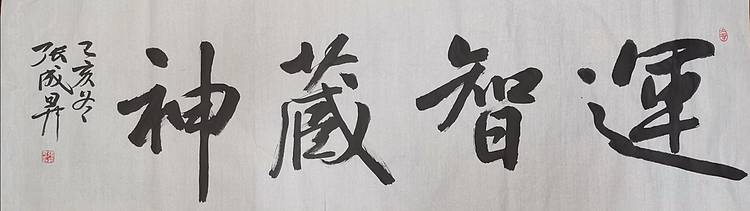 運智藏神
亥冬
张成昇